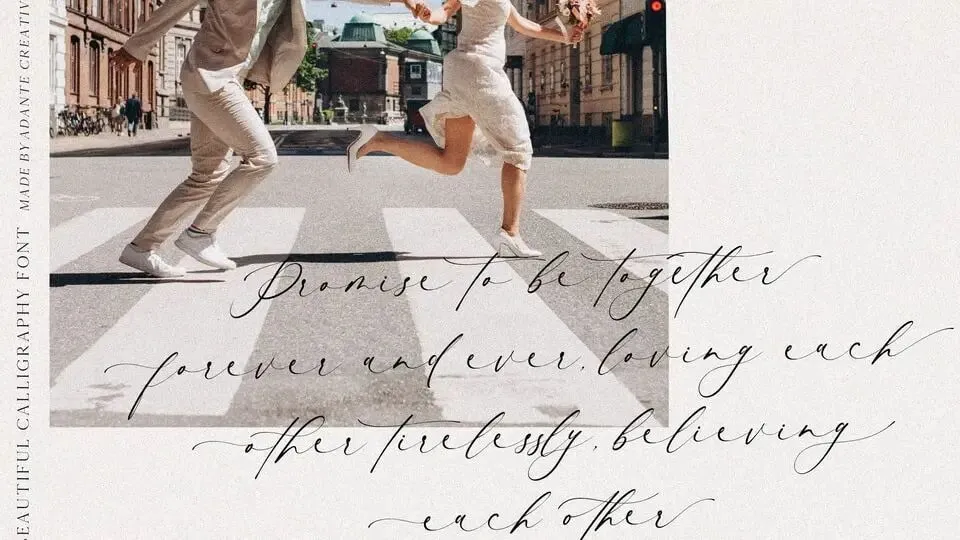 Promise to be together
forever and ever, loving each
other tirelessly, believing
each other
BEAUTIFUL CALLIGRAPHY FONT MADE BY ADANTE CREATIV